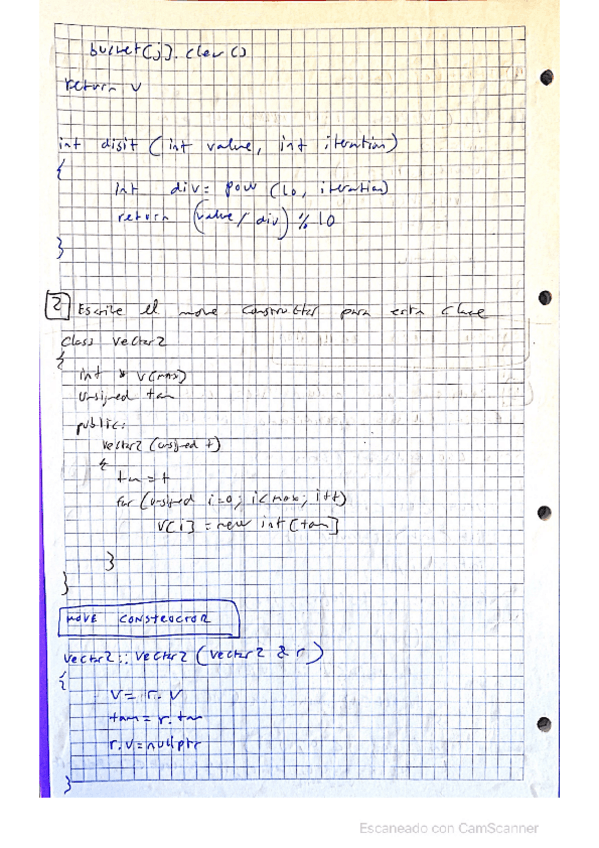 bucket[j].clear()
return v
int digit (int value, int iteration)
{
int div = pow (10, iteration)
return (value / div) % 10
}
2 Escribe el move constructor para esta clase
class Vector2
{
int * v[max]
unsigned tam
public:
vector2 (unsigned t)
{
tam = t
for (unsigned i=0; i<max; i++)
v[i] = new int [tam]
}
}
MOVE CONSTRUCTOR
vector2:: vector2 (vector2 & r)
{
v = r. v
tam = r. tam
r.v = nullptr
}
Escaneado con CamScanner